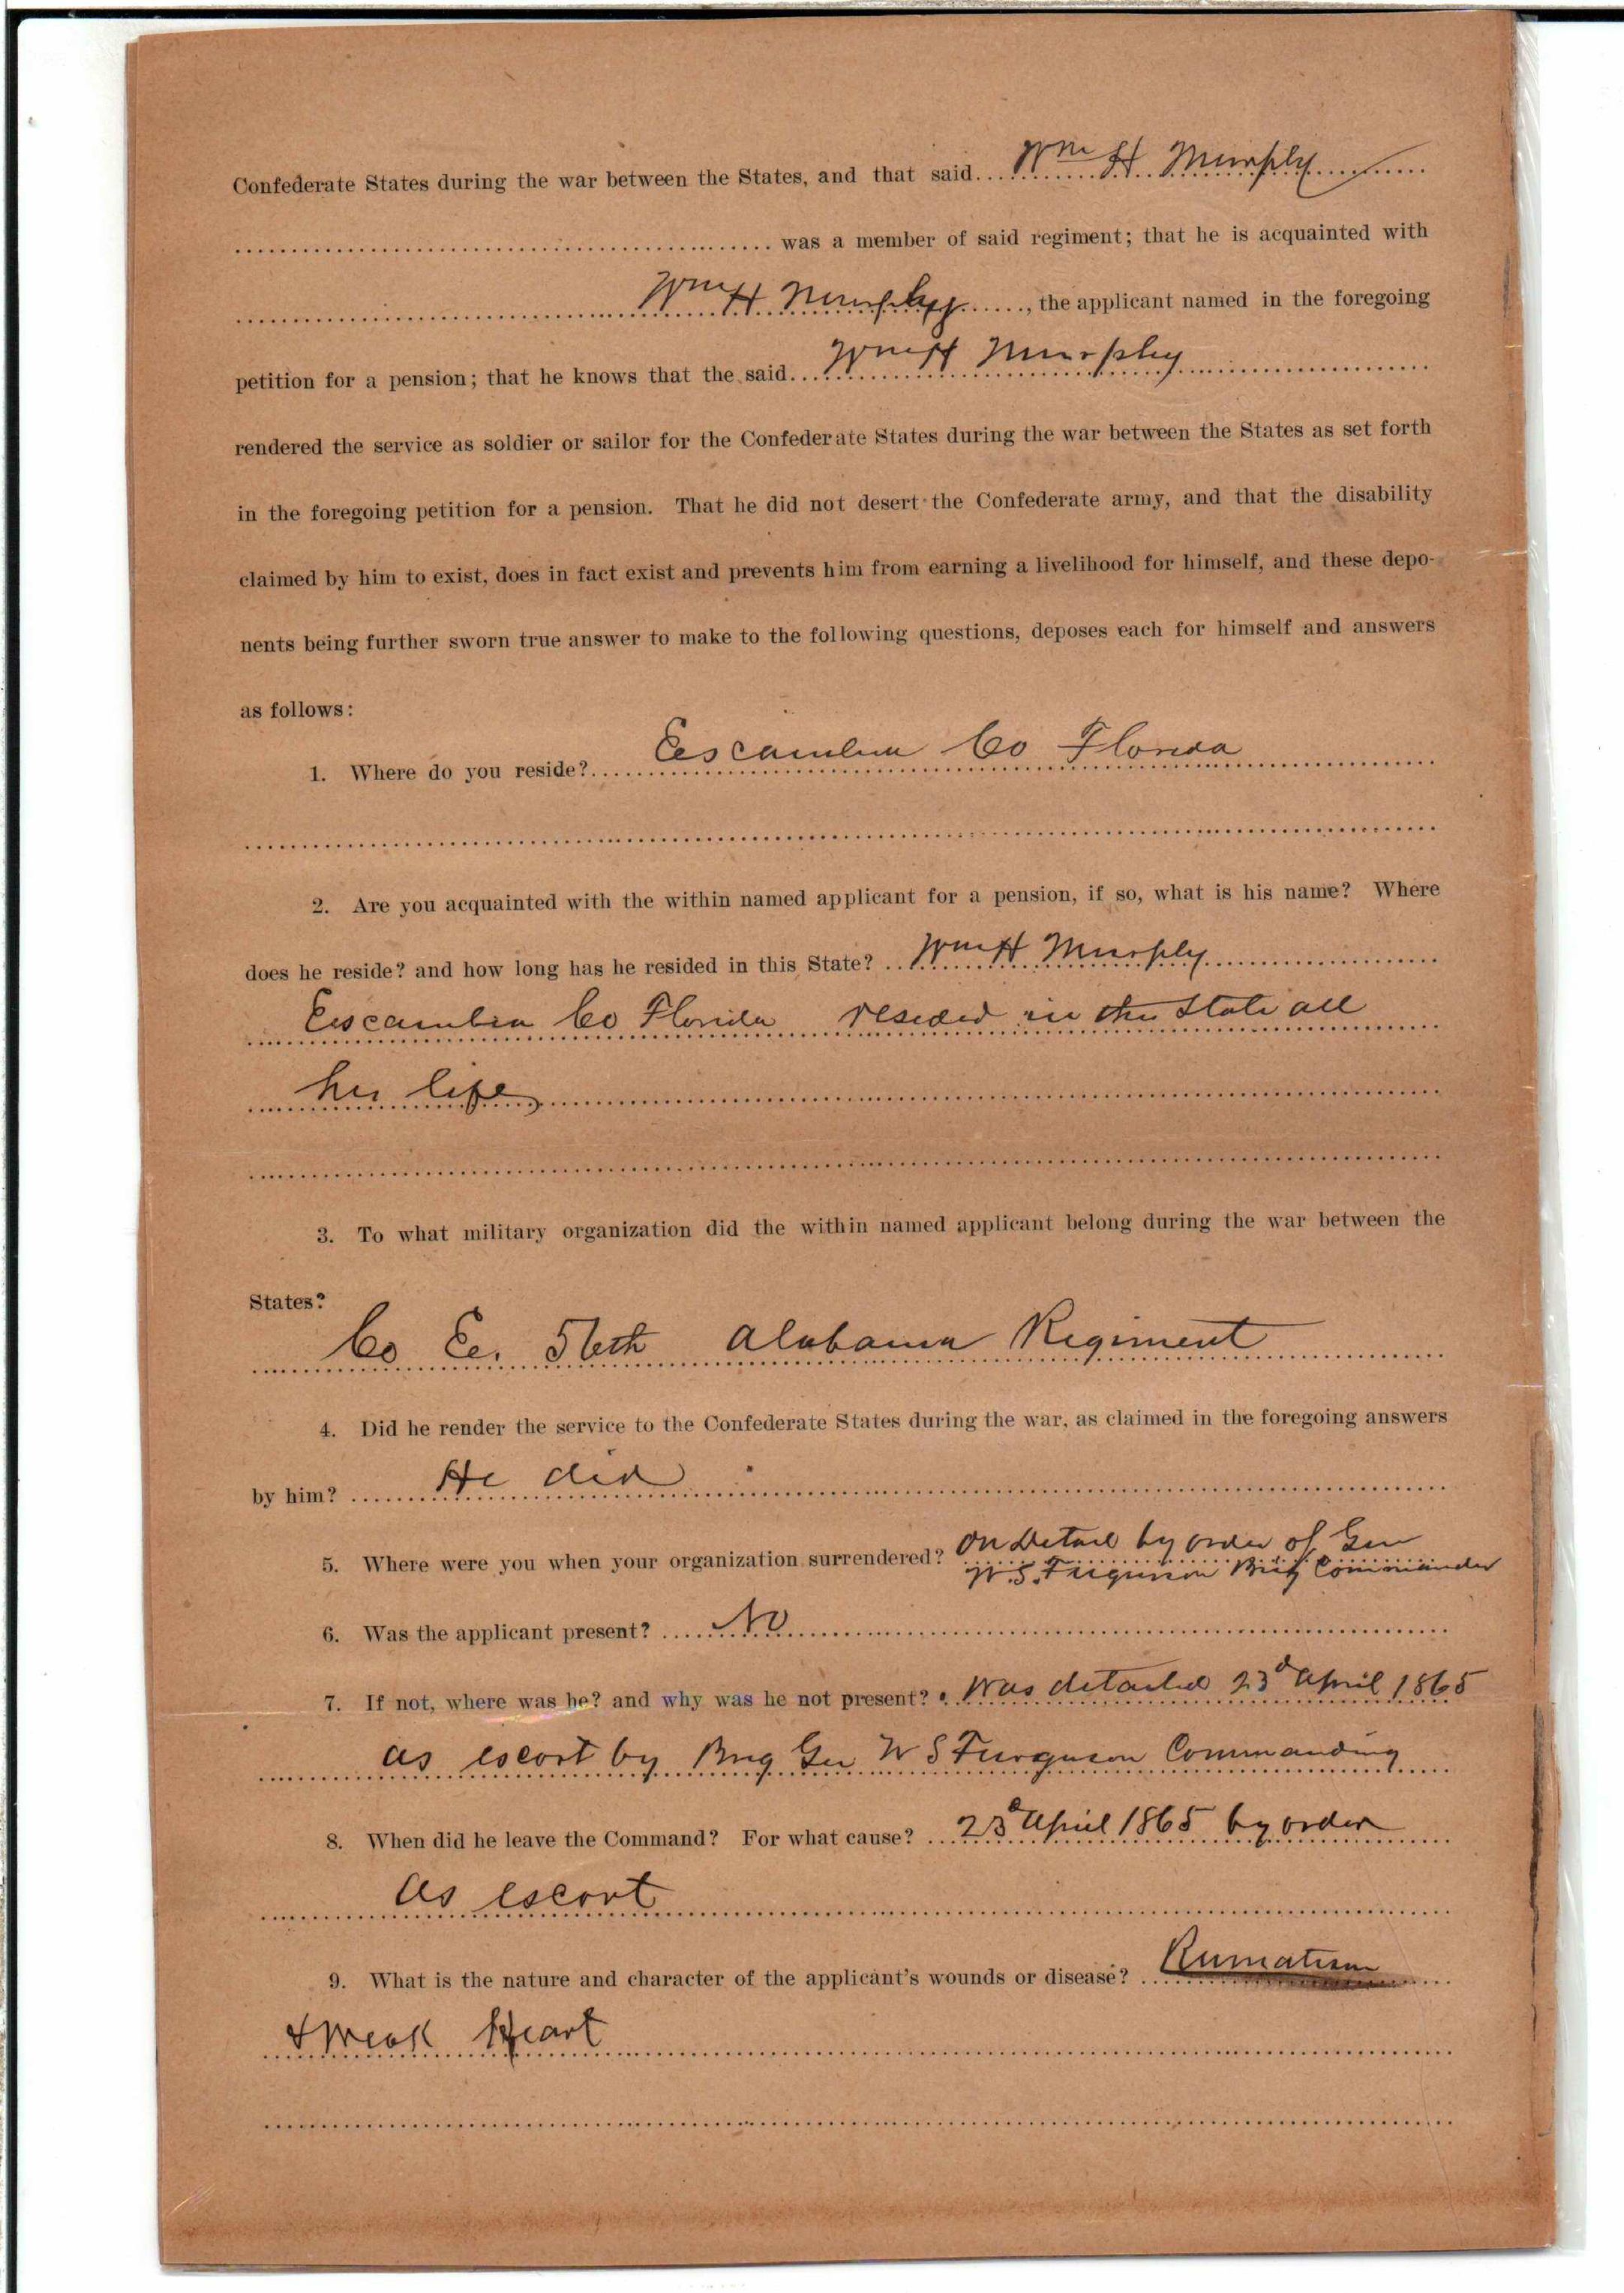 Confederate States during the war between the States, and that said Wm H Murphy
was a member of said regiment; that he is acquainted with
Wm H Murphy, the applicant named in the foregoing
petition for a pension; that he knows that the said Wm H Murphy
rendered the service as soldier or sailor for the Confederate States during the war between the States as set forth
in the foregoing petition for a pension. That he did not desert the Confederate army, and that the disability
claimed by him to exist, does in fact exist and prevents him from earning a livelihood for himself, and these depo-
nents being further sworn true answer to make to the following questions, deposes each for himself and answers
as follows:
1. Where do you reside? Escambia Co Florida
2. Are you acquainted with the within named applicant for a pension, if so, what is his name? Where
does he reside? and how long has he resided in this State? Wm H Murphy
Escambia Co Florida resided in this State all
his life
3. To what military organization did the within named applicant belong during the war between the
States?
Co E. 56th Alabama Regiment
4. Did he render the service to the Confederate States during the war, as claimed in the foregoing answers
by him? He did
5. Where were you when your organization surrendered? On Detail by order of Gen
W. S. Furguson Brig Commander
6. Was the applicant present? No
7. If not, where was he? and why was he not present? Was detailed 23d April 1865
as escort by Brig Gen W S Furguson Commanding
8. When did he leave the Command? For what cause? 23d April 1865 by order
as escort
9. What is the nature and character of the applicant's wounds or disease? Rumatism
& Weak Heart